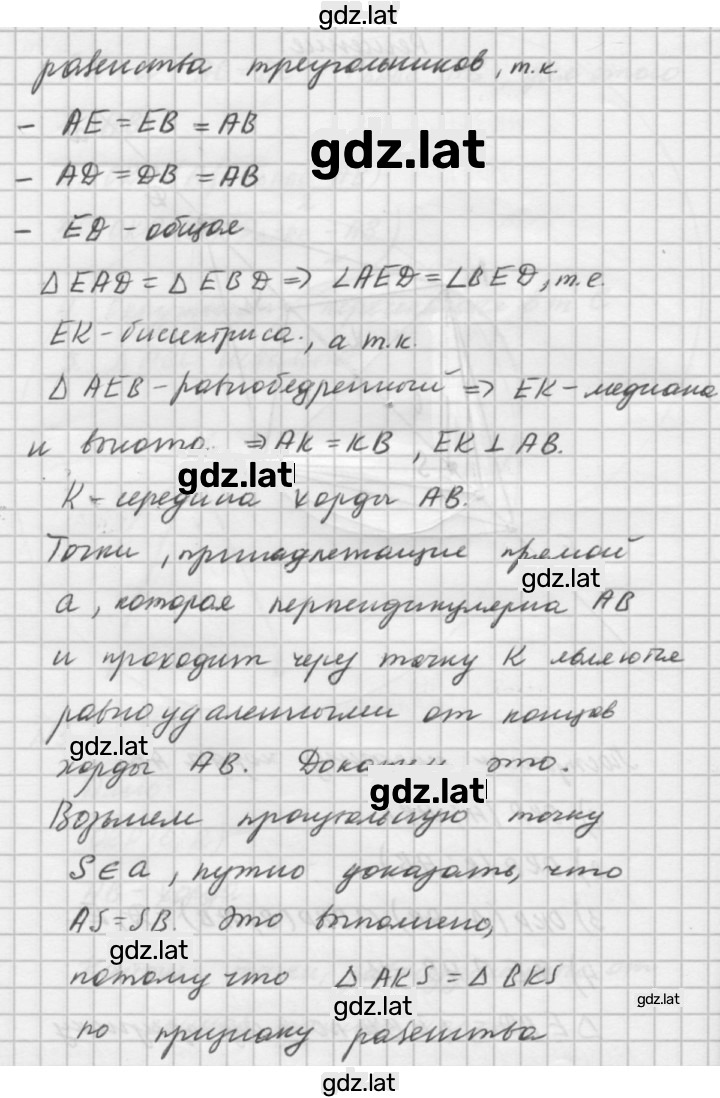 gdz.lat
равенства треугольников, т.к.
– AE = EB = AB
gdz.lat
– AD = DB = AB
– ED – общая
△ EAD = △ EBD ⇒ ∠AED = ∠BED, т.е.
EK – биссектриса, а т.к.
△ AEB – равнобедренный ⇒ EK – медиана
и высота ⇒ AK = KB, EK ⊥ AB.
gdz.lat
K – середина хорды AB.
Точки, принадлежащие прямой
gdz.lat
a, которая перпендикулярна AB
и проходит через точку K являются
равноудаленными от концов
gdz.lat
хорды AB. это.
gdz.lat
Возьмем произвольную точку
S ∈ a, нужно доказать, что
AS = SB. Это выполнено,
gdz.lat
потому что △ AKS = △ BKS
gdz.lat
gdz.lat
по признаку равенства
gdz.lat